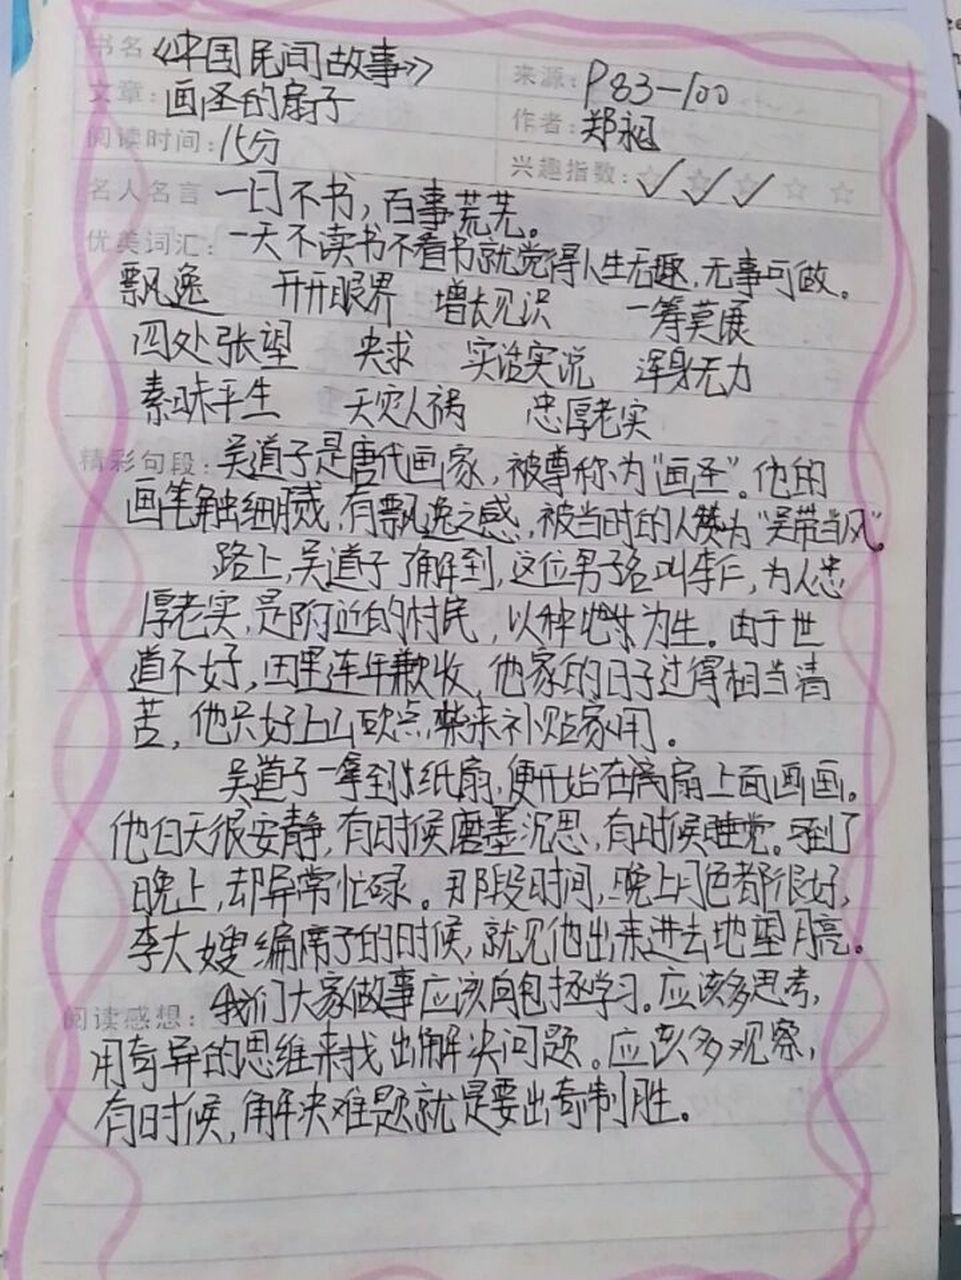 书名《中国民间故事》 来源: P83-100
文章: 画圣的扇子 作者: 郑昶
阅读时间: 15分 兴趣指数: ☆☆☆☆☆
名人名言 一日不书，百事荒芜。
优美词汇: 一天不读书不看书就觉得人生无趣，无事可做。
飘逸 开开眼界 增长见识 一筹莫展
四处张望 央求 实话实说 浑身无力
素昧平生 天灾人祸 忠厚老实
精彩句段: 吴道子是唐代画家，被尊称为“画圣”。他的
画笔触细腻，有飘逸之感，被当时的人赞为“吴带当风”。
路上，吴道子了解到，这位男子名叫李仁，为人忠
厚老实，是附近的村民，以种地为生。由于世
道不好，田里连年歉收，他家的日子过得相当清
苦，他只好上山砍点柴来补贴家用。
吴道子一拿到纸扇，便开始在扇上面画画。
他白天很安静，有时候磨墨沉思，有时候睡觉。到了
晚上，却异常忙碌。那段时间，晚上月色都很好，
李大嫂编席子的时候，就见他出来进去地望月亮。
阅读感想: 我们大家做事应该向包拯学习。应该多思考，
用奇异的思维来找出解决问题。应该多观察，
有时候，解决难题就是要出奇制胜。